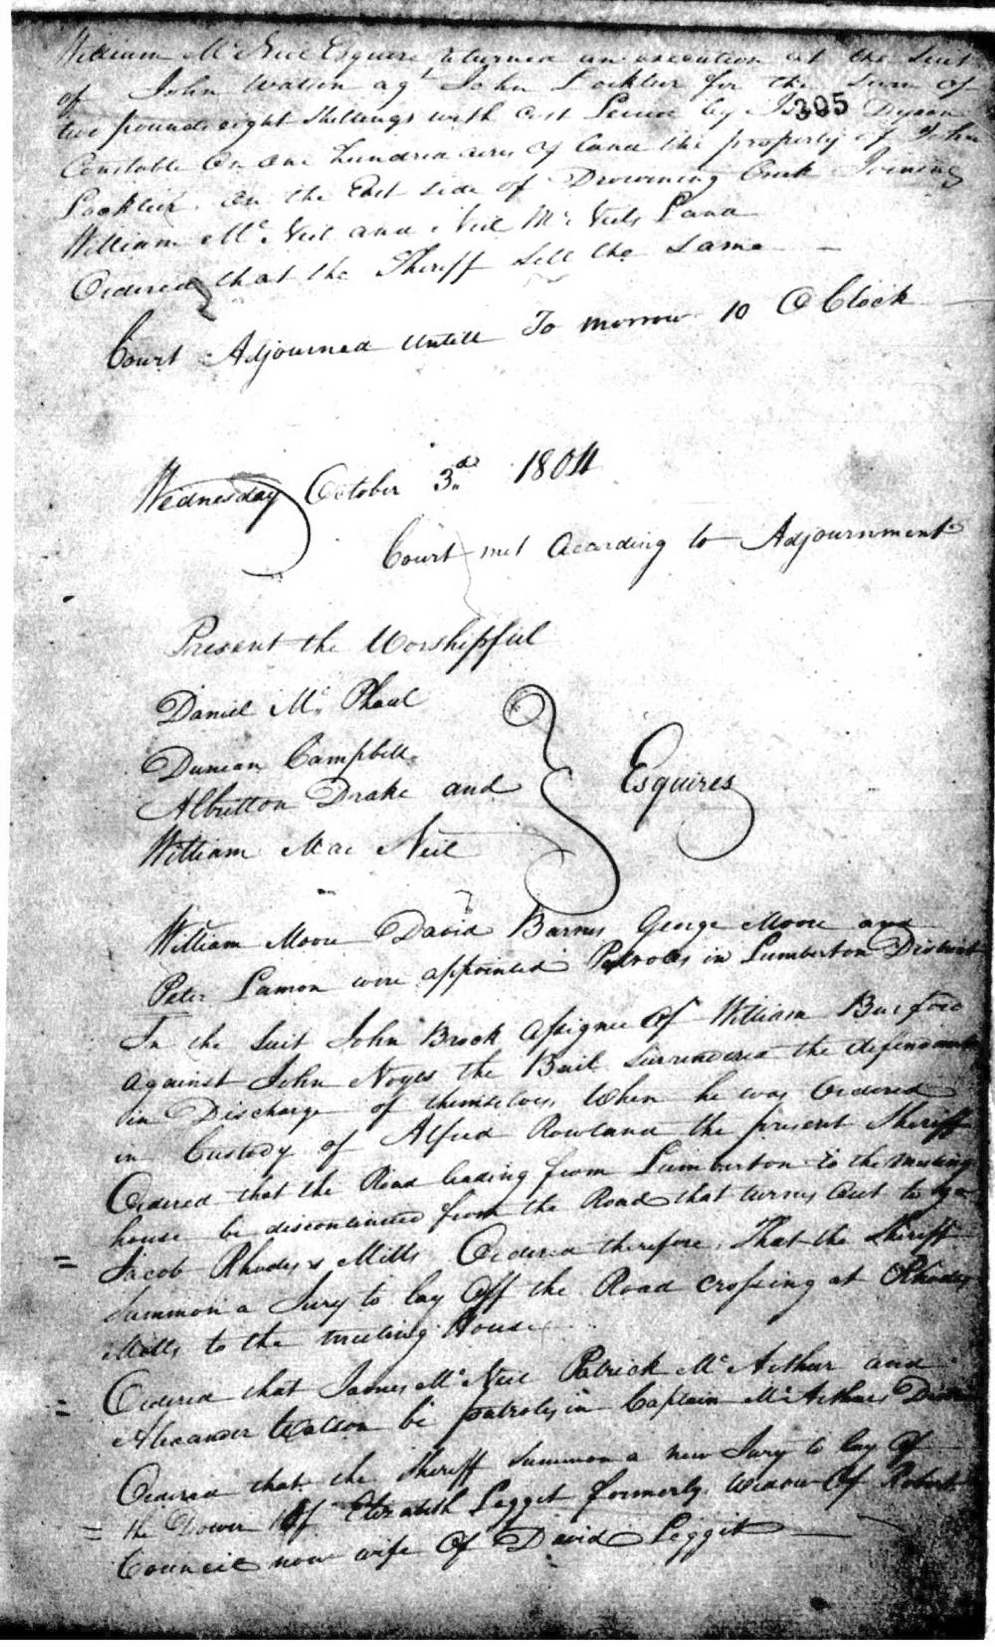 William McNeil Esquire returned an execution at the Suit
of John Watson agt John Locklier for the sum of
305
two pounds eight Shillings with cost Levied by Dyson
Constable On one hundred acres of Land the property of John
Locklier On the East side of Drowning Creek Joining
William Mc Neil and Neil Mc Neils Land
Ordered that the Sheriff sell the same
Court Adjourned Untill To morrow 10 O Clock
Wednesday October 3d 1804
Court met Acarding to Adjournment
Present the Worshipfull
Daniel Mc Phaul
Duncan Campbell
Albritton Drake and
William Mac Neil
Esquires
William Moore David Barnes George Moore and
Peter Lamon were appointed Patroles in Lumberton District
In the Suit John Brock Assignee Of William Burford
Against John Noyes the Bail surrendered the defendant
in Discharge of themselves When he was Ordered
in Custody of Alfred Rowland the present Sheriff
Ordered that the Road leading from Lumberton to the meeting
house be discontinued from the Road that turns Out to go
Jacob Rhodes's Mills Ordered therefore That the Sheriff
Summon a Jury to lay Off the Road crossing at Rhodes
Mills to the meeting House
Ordered that James Mc Neil Patrick Mc Arthur and
Alexander Watson be patroles in Captain Mc Arthurs
Ordered that the Sheriff Summon a new Jury to lay Of
the Dower Of Elizabeth Leggit formerly Widow Of Robert
Council now wife Of David Leggit